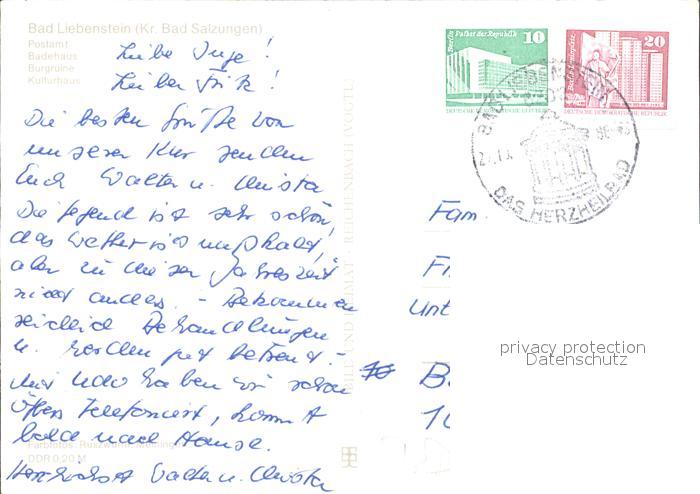 Bad Liebenstein (Kr. Bad Salzungen)
Postamt
Badehaus
Burgruine
Kulturhaus
Liebe Inge!
Lieber Fritz!
Die besten Grüße von
unserer Kur senden
Euch Walter u. Christa
Die Gegend ist sehr schön,
das Wetter ist
aber zu dieser Jahreszeit
nicht anders. - Bekommen
reichlich Behandlungen
u. werden gut betreut. -
Mit Udo haben wir schon
öfters telefoniert, kommt
bald nach Hause.
Herzlichst Walter u. Christa
DDR 0,20 M
BILD UND HEIMAT REICHENBACH (VOGTL)
Berlin, Palast der Republik
10
DEUTSCHE DEMOKRATISCHE REPUBLIK
20
DEUTSCHE DEMOKRATISCHE REPUBLIK
BAD LIEBENSTEIN
DAS HERZHEILBAD
Fam.
privacy protection
Datenschutz